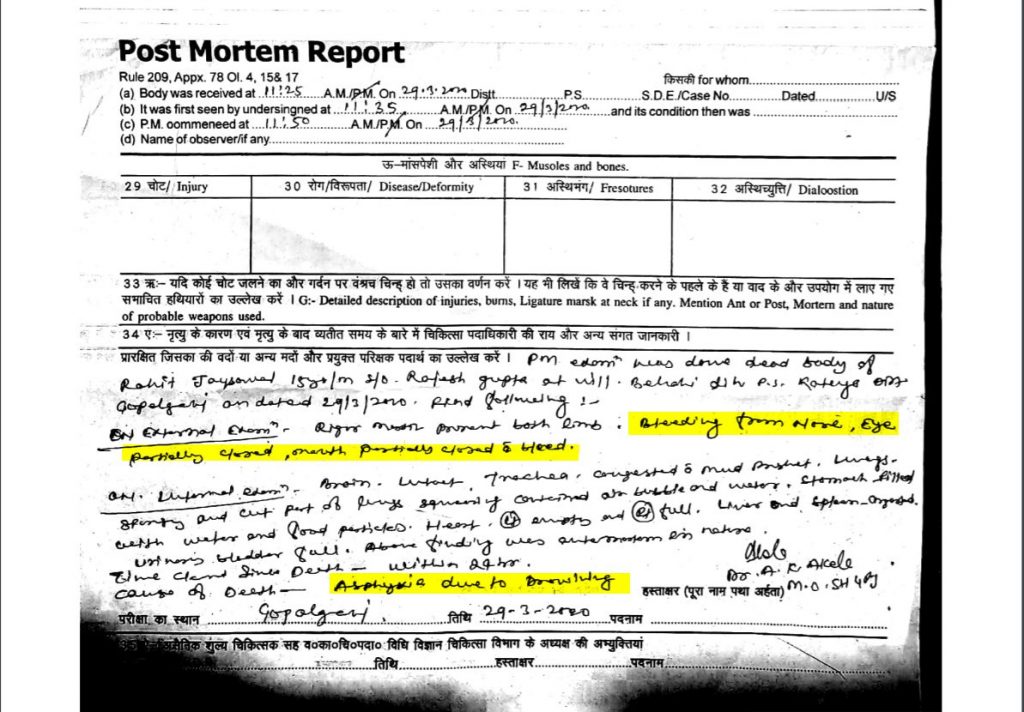 Post Mortem Report
Rule 209, Appx. 78 Ol. 4, 15& 17
किसकी for whom
(a) Body was received at 11:25 A.M./P.M. On 29.3.2020 Distt. P.S. S.D.E./Case No. Dated U/S
(b) It was first seen by undersingned at 11:35 A.M./P.M. On 29/3/2020 and its condition then was
(c) P.M. oommeneed at 11:50 A.M./P.M. On 29/3/2020
(d) Name of observer/if any
ऊ-मांसपेशी और अस्थियां F- Musoles and bones.
29 चोट/ Injury 30 रोग/विरूपता/ Disease/Deformity 31 अस्थिभंग/ Fresotures 32 अस्थिच्युत्ति/ Dialoostion
33 ऋ:- यदि कोई चोट जलने का और गर्दन पर वंश्रच चिन्ह् हो तो उसका वर्णन करें । यह भी लिखें कि वे चिन्ह्-करने के पहले के हैं या वाद के और उपयोग में लाए गए
समाचित हथियारों का उल्लेख करें । G:- Detailed description of injuries, burns, Ligature marsk at neck if any. Mention Ant or Post, Mortem and nature
of probable weapons used.
34 ए:- मृत्यु के कारण एवं मृत्यु के बाद व्यतीत समय के बारे में चिकित्सा पदाधिकारी की राय और अन्य संगत जानकारी ।
प्रारक्षित जिसका की वदों या अन्य मदों और प्रयुक्त परिक्षक पदार्थ का उल्लेख करें । PM exam was done dead body of
Rohit Jaysawal 15yr/m s/o. Rajesh gupta at vill. P.S. Kateya
Gopalganj on dated 29/3/2020. following :-
External Exam - present both limb. Bleeding from Nose, Eye
partially closed, mouth partially closed blood.
Exam - Brain. Trachea. congested Lungs.
spongy and cut part of lungs squeezing contained air bubble and water. Stomach filled
with water and food particles. Heart. empty and full. Liver and Spleen
bladder full. Above finding was in nature.
Time Since Death - Within 24hr.
Dr. A. K.
cause of Death - Asphyxia due to Drowning हस्ताक्षर (पूरा नाम पथा अर्हता) M.O.
परीक्षा का स्थान Gopalganj तिथि 29-3-2020 पदनाम
शुल्य चिकित्सक सह व०का०चि०पदा० विधि विज्ञान चिकित्सा विभाग के अध्यक्ष की अभ्युक्तियां
तिथि हस्ताक्षर पदनाम